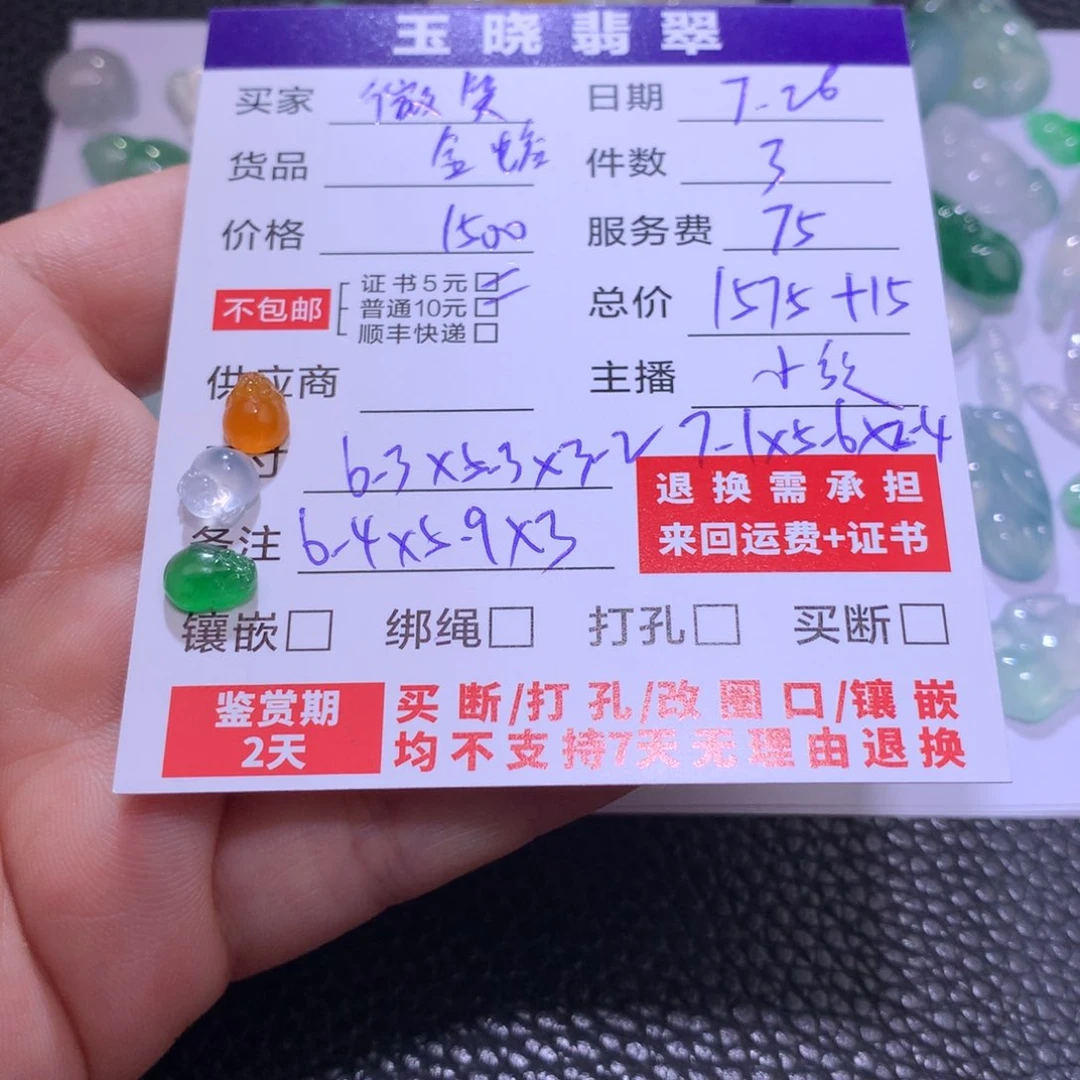 玉晓翡翠
买家 微笑 日期 7-26
货品 金蟾 件数 3
价格 1500 服务费 75
不包邮 证书5元 总价 1575+15
普通10元
顺丰快递
供应商 主播 小纹
寸 6-3×5-3×3-2 7-1×5-6×2-4
备注 6-4×5-9×3
退换需承担
来回运费+证书
镶嵌 绑绳 打孔 买断
鉴赏期 买断/打孔/改圈口/镶嵌
2天 均不支持7天无理由退换